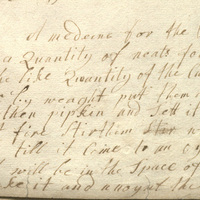 A medcine for the
a Quantity of neats foo
he like Quantity of the
by weaght put them
then pipkin and sett it
fire Stir them
till it Come to an oy
will be in the Space of
it and anoynt the